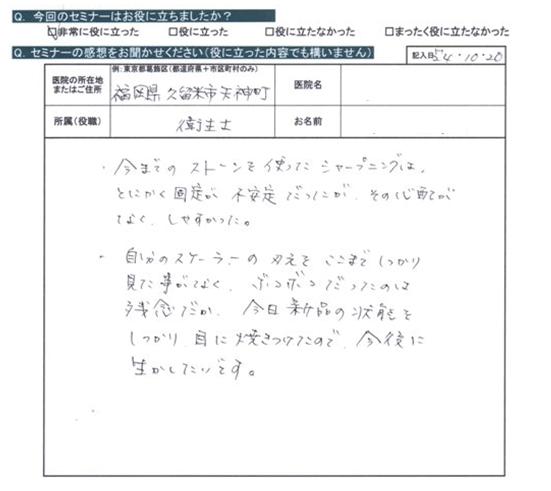 Q. 今回のセミナーはお役に立ちましたか?
☑非常に役に立った □役に立った □役に立たなかった □まったく役に立たなかった
Q. セミナーの感想をお聞かせください(役に立った内容でも構いません) 記入日 24・10・20
例:東京都葛飾区(都道府県+市区町村のみ)
医院の所在地またはご住所 福岡県久留米市天神町 医院名
所属(役職) 衛生士 お名前
・今までのストーンを使ったシャープニングは、
とにかく固定が不安定だったが、その心配が
なく、しやすかった。
・自分のスケーラーの刃先をここまでしっかり
見た事がなく、ボコボコだったのは
残念だが、今日新品の状態を
しっかり目に焼きつけたので、今後に
生かしたいです。